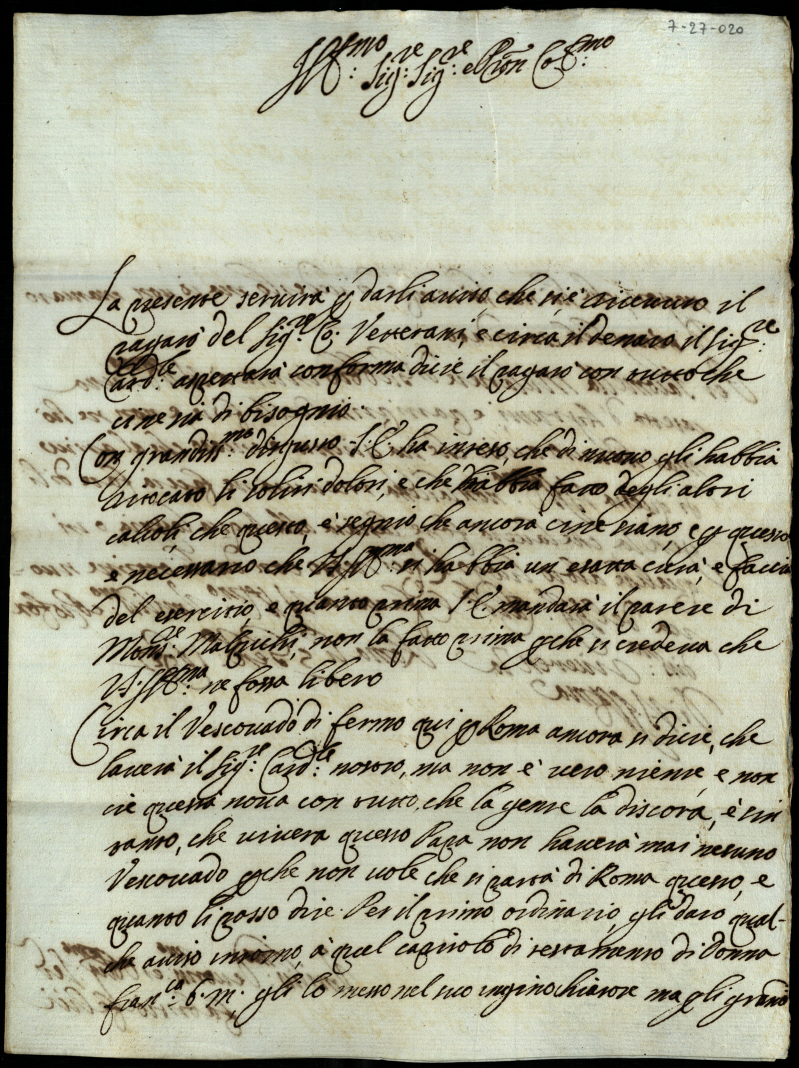 7-27-020
Ill:mo Sig:re Sig:re e Pron Co:mo
La presente servirà p darli aviso, che si è ricevuto il
pagarò del Sig:re Co: Vetterani, e circa il denaro il Sig:re
Card:le aspettarà conforma dicie il pagarò con tutto che
ci ne sia di bisognio.
Con grandiss:mo disgusto S: E. ha inteso, che di nuovo gli habbia
toccato li soliti dolori, e che habbia fatto degli altri
calcoli che questo, è segnio che ancora cine siano, e p questo
e necessario che V.S. Ill:ma si habbia un esatta cura, e faccia
del esercitio, e quanto prima S. E. mandarà il parere di
Mons:re Malpichi, non la fatto prima pche si credeva che
V.S. Ill:ma ne fossa libero
Circa il Vescovado di fermo qui p Roma ancora si dicie, che
laverà il Sig:re Card:le nostro, ma non è vero niente e non
cie questa nova con tutto, che la gente la discora, è sin
tanto, che viverà questo Papa non haverà mai nesuno
Vescovado pche non vole che si parta di Roma questo, e
quanto li posso dire. Per il primo ordinario gli darò qual-
che aviso intorno, à quel capitolo di testamento di Donna
fran:ca b. m. gli lo messo nel suo inginochiatore ma gli grandi